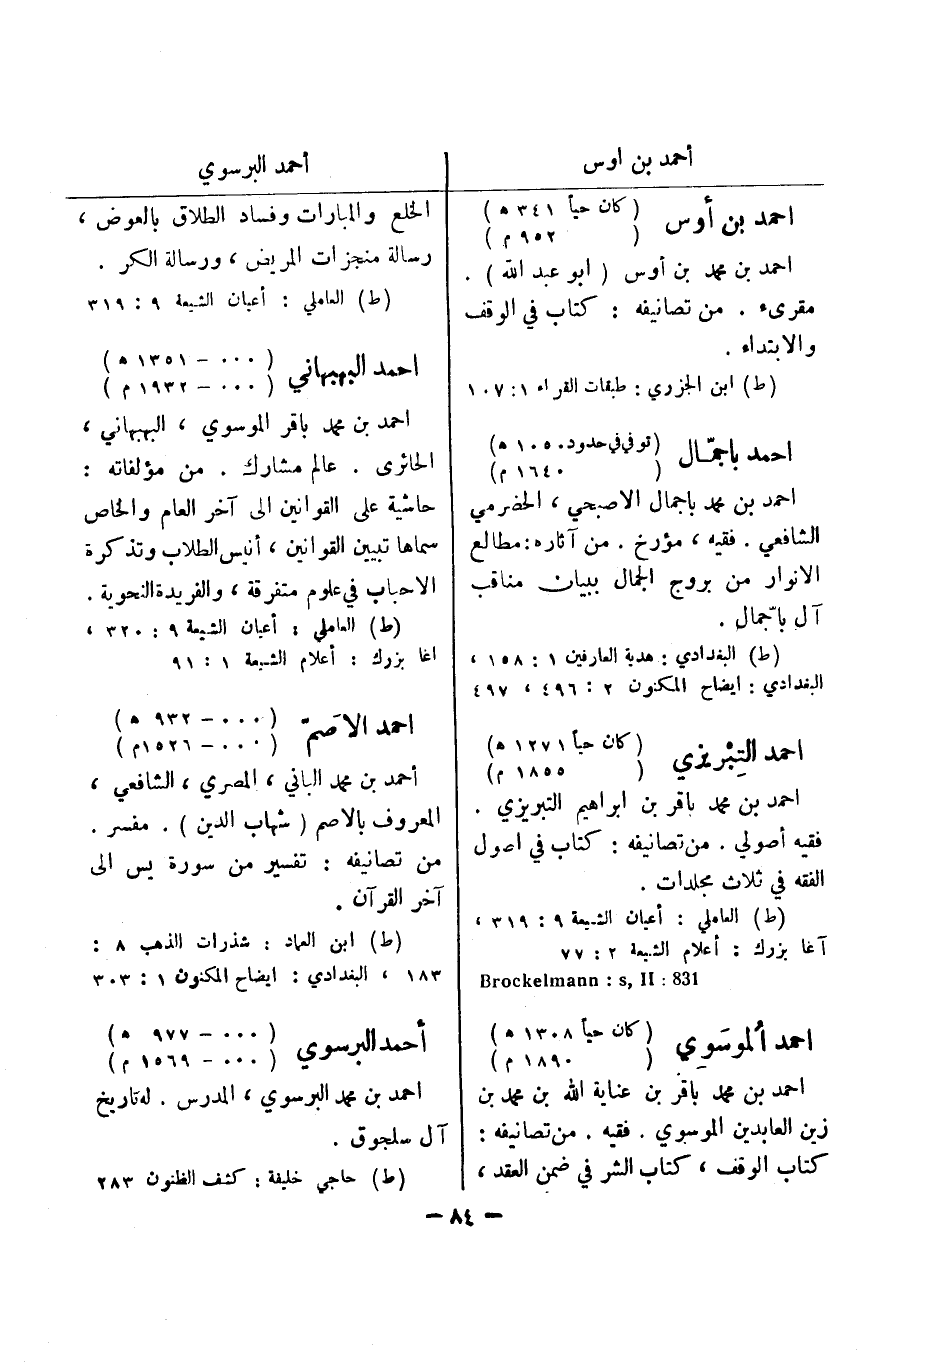 أحمد بن اوس
أحمد البرسوي
احمد بن أوس ( كان حياً ٣٤١ ه )
( ٩٥٢ م )
احمد بن محمد بن أوس ( ابو عبد الله ) .
مقرىء . من تصانيفه : كتاب في الوقف
والابتداء .
(ط) ابن الجزري : طبقات القراء ١ : ١٠٧
احمد باجمّال (توفي في حدود ١٠٥٠ ه)
( ١٦٤٠ م)
احمد بن محمد باجمال الاصبحي ، الحضرمي
الشافعي . فقيه ، مؤرخ . من آثاره : مطالع
الانوار من بروج الجمال ببيان مناقب
آل باجمال .
(ط) البغدادي : هدية العارفين ١ : ١٥٨ ،
البغدادي : ايضاح المكنون ٢ : ٤٩٦ ، ٤٩٧
احمد التِبْريزي ( كان حياً ١٢٧١ ه )
( ١٨٥٥ م )
احمد بن محمد باقر بن ابراهيم التبريزي .
فقيه أصولي . من تصانيفه : كتاب في اصول
الفقه في ثلاث مجلدات .
(ط) العاملي : أعيان الشيعة ٩ : ٣١٩ ،
آغا بزرك : أعلام الشيعة ٢ : ٧٧
Brockelmann : s, II : 831
احمد ألموسَوِي ( كان حياً ١٣٠٨ ه )
( ١٨٩٠ م )
احمد بن محمد باقر بن عناية الله بن محمد بن
زين العابدين الموسوي . فقيه . من تصانيفه :
كتاب الوقف ، كتاب الشر في ضمن العقد ،
الخلع والمبارات وفساد الطلاق بالعوض ،
رسالة منجزات المريض ، ورسالة الكر .
(ط) العاملي : أعيان الشيعة ٩ : ٣١٩
احمد البهبهاني ( ٠٠٠ – ١٣٥١ ه )
( ٠٠٠ – ١٩٣٢ م )
احمد بن محمد باقر الموسوي ، البهبهاني ،
الحائرى . عالم مشارك . من مؤلفاته :
حاشية على القوانين الى آخر العام والخاص
سماها تبيين القوانين ، أنيس الطلاب وتذكرة
الاحباب في علوم متفرقة ، والفريدة النحوية .
(ط) العاملي : أعيان الشيعة ٩ : ٣٢٠ ،
اغا بزرك : أعلام الشيعة ١ : ٩١
احمد الاَصمّ ( ٠٠٠ – ٩٣٢ ه )
( ٠٠٠ – ١٥٢٦ م )
أحمد بن محمد الباني ، المصري ، الشافعي ،
المعروف بالاصم ( شهاب الدين ) . مفسر .
من تصانيفه : تفسير من سورة يس الى
آخر القرآن .
(ط) ابن العماد : شذرات الذهب ٨ :
١٨٣ ، البغدادي : ايضاح المكنون ١ : ٣٠٣
أحمد البرسوي ( ٠٠٠ – ٩٧٧ ه )
( ٠٠٠ – ١٥٦٩ م )
احمد بن محمد البرسوي ، المدرس . له تاريخ
آل سلجوق .
(ط) حاجي خليفة : كشف الظنون ٢٨٣
– ٨٤ –